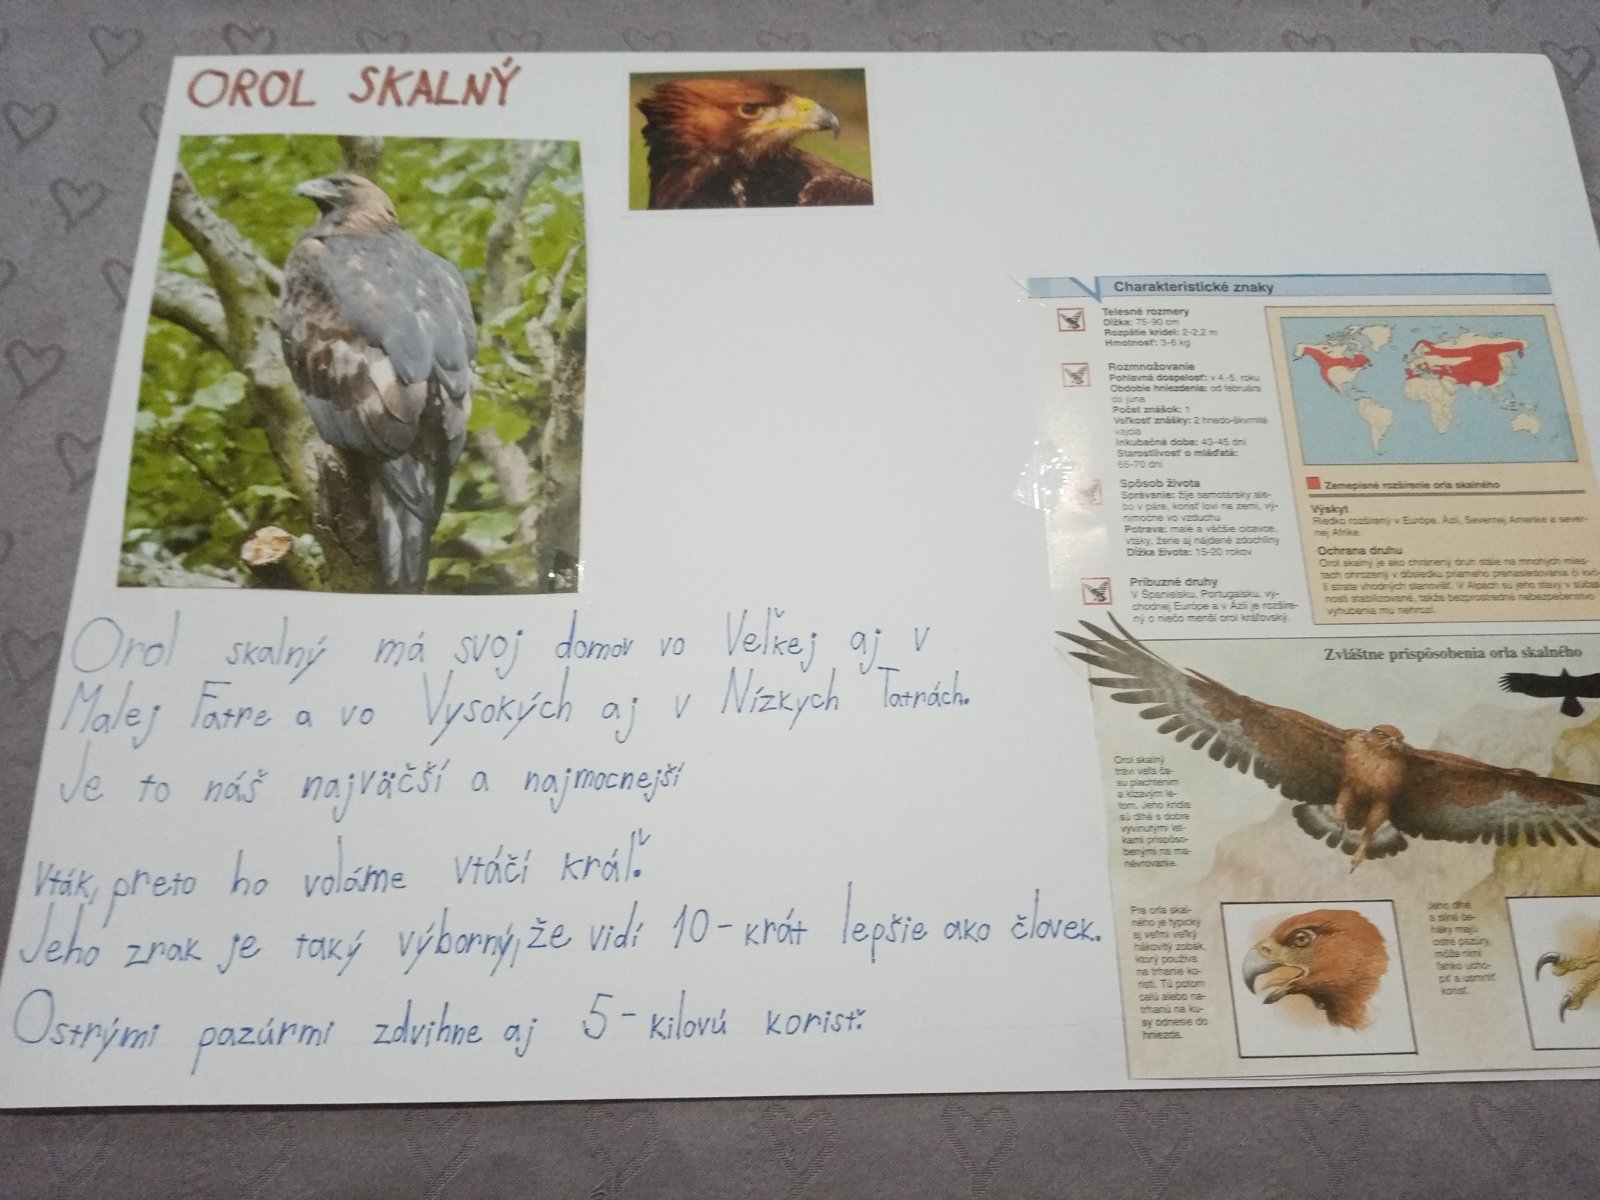 OROL SKALNÝ
Orol skalný má svoj domov vo Veľkej aj v
Malej Fatre a vo Vysokých aj v Nízkych Tatrách.
Je to náš najväčší a najmocnejší
vták, preto ho voláme vtáčí kráľ.
Jeho zrak je taký výborný, že vidí 10-krát lepšie ako človek.
Ostrými pazúrmi zdvihne aj 5-kilovú korisť.
Charakteristické znaky
Telesné rozmery
Dĺžka: 75-90 cm
Rozpätie krídel: 2-2,2 m
Hmotnosť: 3-6 kg
Rozmnožovanie
Pohlavná dospelosť: v 4.-5. roku
Obdobie hniezdenia: od februára
do júna
Počet znášok: 1
Veľkosť znášky: 2 hnedo-škvrnité
vajcia
Inkubačná doba: 43-45 dní
Starostlivosť o mláďatá:
65-70 dní
Spôsob života
Správanie: žije samotársky ale-
bo v páre, korisť loví na zemi, vý-
nimočne vo vzduchu
Potrava: malé a väčšie cicavce,
vtáky, žerie aj nájdené zdochliny
Dĺžka života: 15-20 rokov
Príbuzné druhy
V Španielsku, Portugalsku, vý-
chodnej Európe a v Ázii je rozšíre-
ný o niečo menší orol kráľovský.
Zemepisné rozšírenie orla skalného
Výskyt
Riedko rozšírený v Európe, Ázii, Severnej Amerike a sever-
nej Afrike.
Ochrana druhu
Orol skalný je ako chránený druh stále na mnohých mies-
tach ohrozený v dôsledku priameho prenasledovania či kvô-
li strate vhodných stanovíšť. V Alpách sú jeho stavy v súčas-
nosti stabilizované, takže bezprostredné nebezpečenstvo
vyhubenia mu nehrozí.
Zvláštne prispôsobenia orla skalného
Orol skalný
trávi veľa ča-
su plachtením
a kĺzavým le-
tom. Jeho krídla
sú dlhé s dobre
vyvinutými let-
kami prispôso-
benými na ma-
névrovanie.
Pre orla skal-
ného je typický
aj veľmi veľký
hákovitý zobák,
ktorý používa
na trhanie ko-
risti. Tú potom
celú alebo na-
trhanú na ku-
sy odnesie do
hniezda.
Jeho dlhé
a silné be-
háky majú
ostré pazúry,
môže nimi
ľahko ucho-
piť a usmrtiť
korisť.